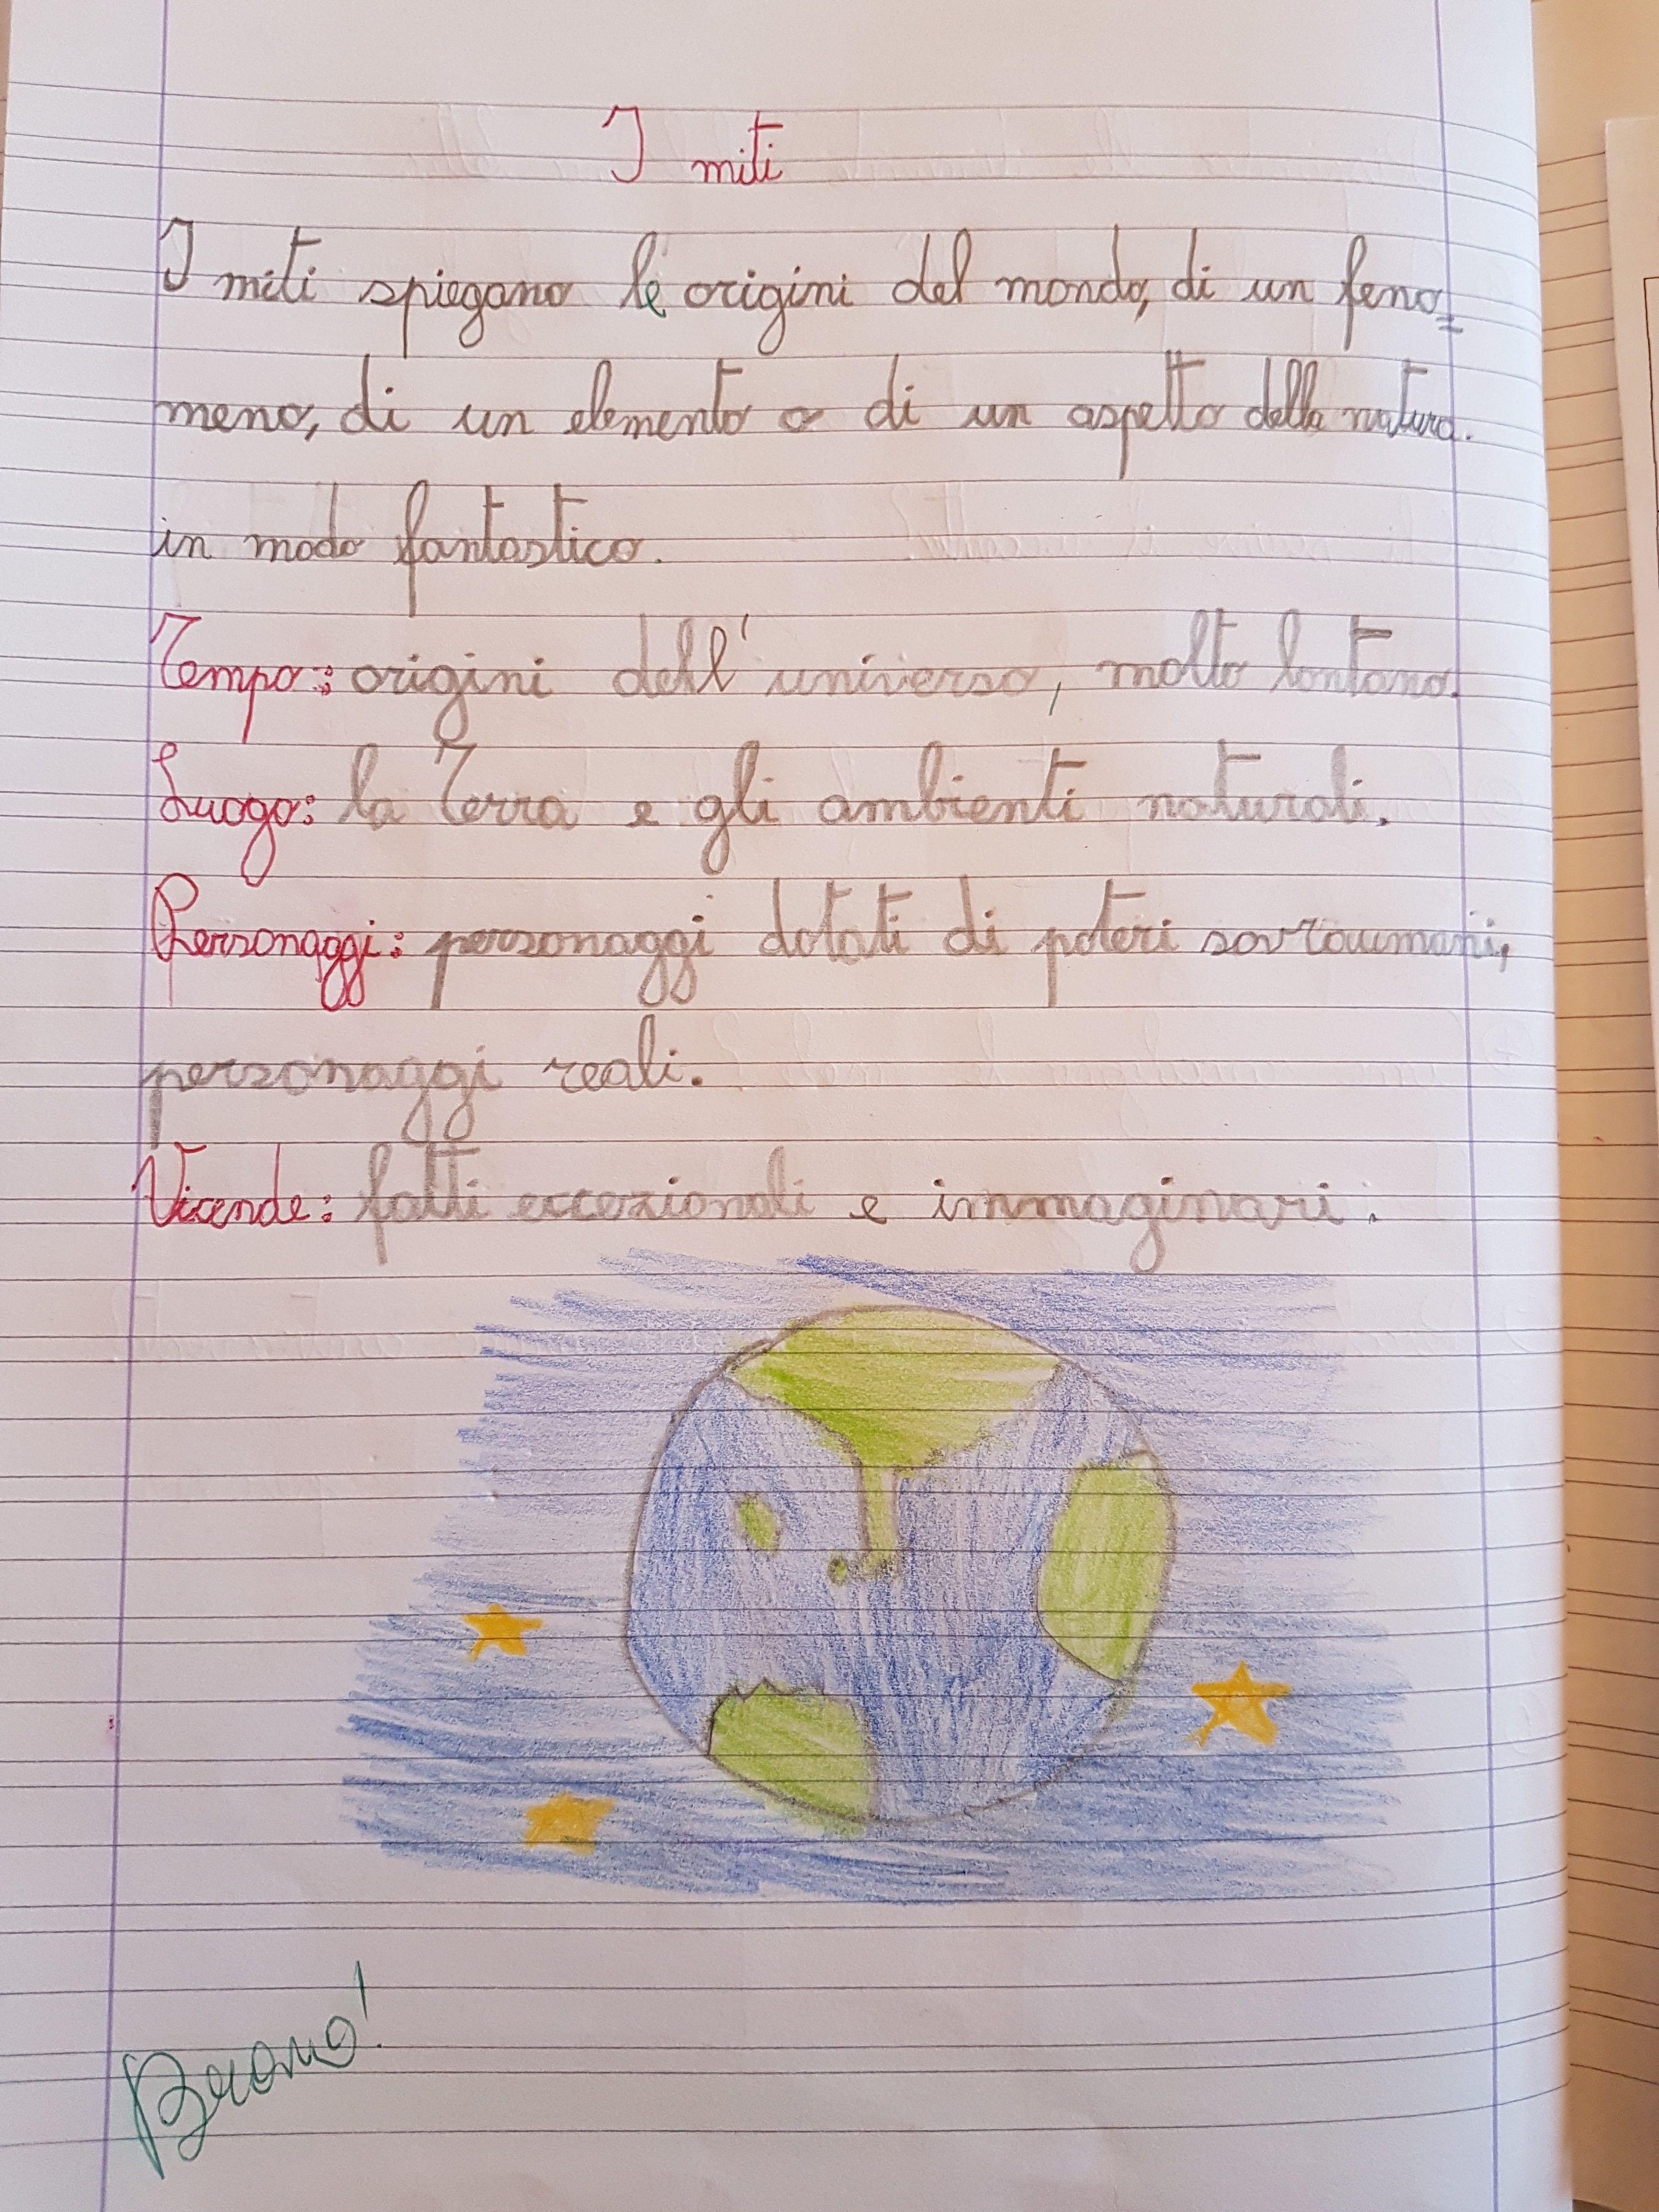 I miti
I miti spiegano le origini del mondo, di un feno=
meno, di un elemento o di un aspetto della natura.
in modo fantastico.
Tempo: origini dell'universo, molto lontano.
Luogo: la Terra e gli ambienti naturali.
Personaggi: personaggi dotati di poteri sovraumani,
personaggi reali.
Vicende: fatti eccezionali e immaginari.
Buono!